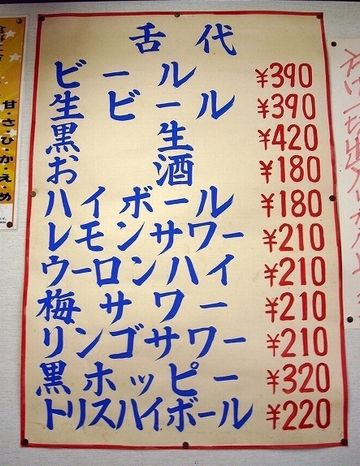 舌代
ビール ¥390
生ビール ¥390
黒生 ¥420
お酒 ¥180
ハイボール ¥180
レモンサワー ¥210
ウーロンハイ ¥210
梅サワー ¥210
リンゴサワー ¥210
黒ホッピー ¥320
トリスハイボール ¥220
甘・さ・ひ・か・え・め